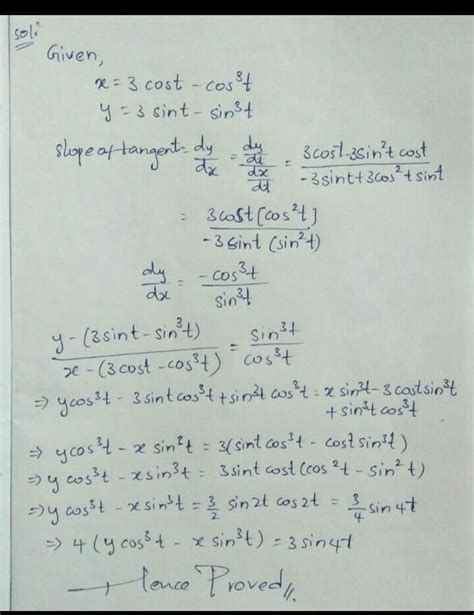 Sol:
Given,
x = 3 cost - cos³t
y = 3 sint - sin³t
slope of tangent = dy/dx = (dy/dt)/(dx/dt) = (3cost - 3sin²t cost)/(-3sint + 3cos²t sint)
= 3cost [cos²t]/-3sint (sin²t)
dy/dx = -cos³t/sin³t
(y - (3sint - sin³t))/(x - (3cost - cos³t)) = sin³t/cos³t
⇒ ycos³t - 3sint cos³t + sin³t cos³t = x sin³t - 3 cost sin³t
+ sin³t cos³t
⇒ ycos³t - x sin²t = 3(sint cos³t - cost sin³t)
⇒ y cos³t - x sin³t = 3sint cost (cos²t - sin²t)
⇒ y cos³t - x sin³t = 3/2 sin 2t cos 2t = 3/4 sin 4t
⇒ 4 (y cos³t - x sin³t) = 3 sin 4t
Hence Proved //